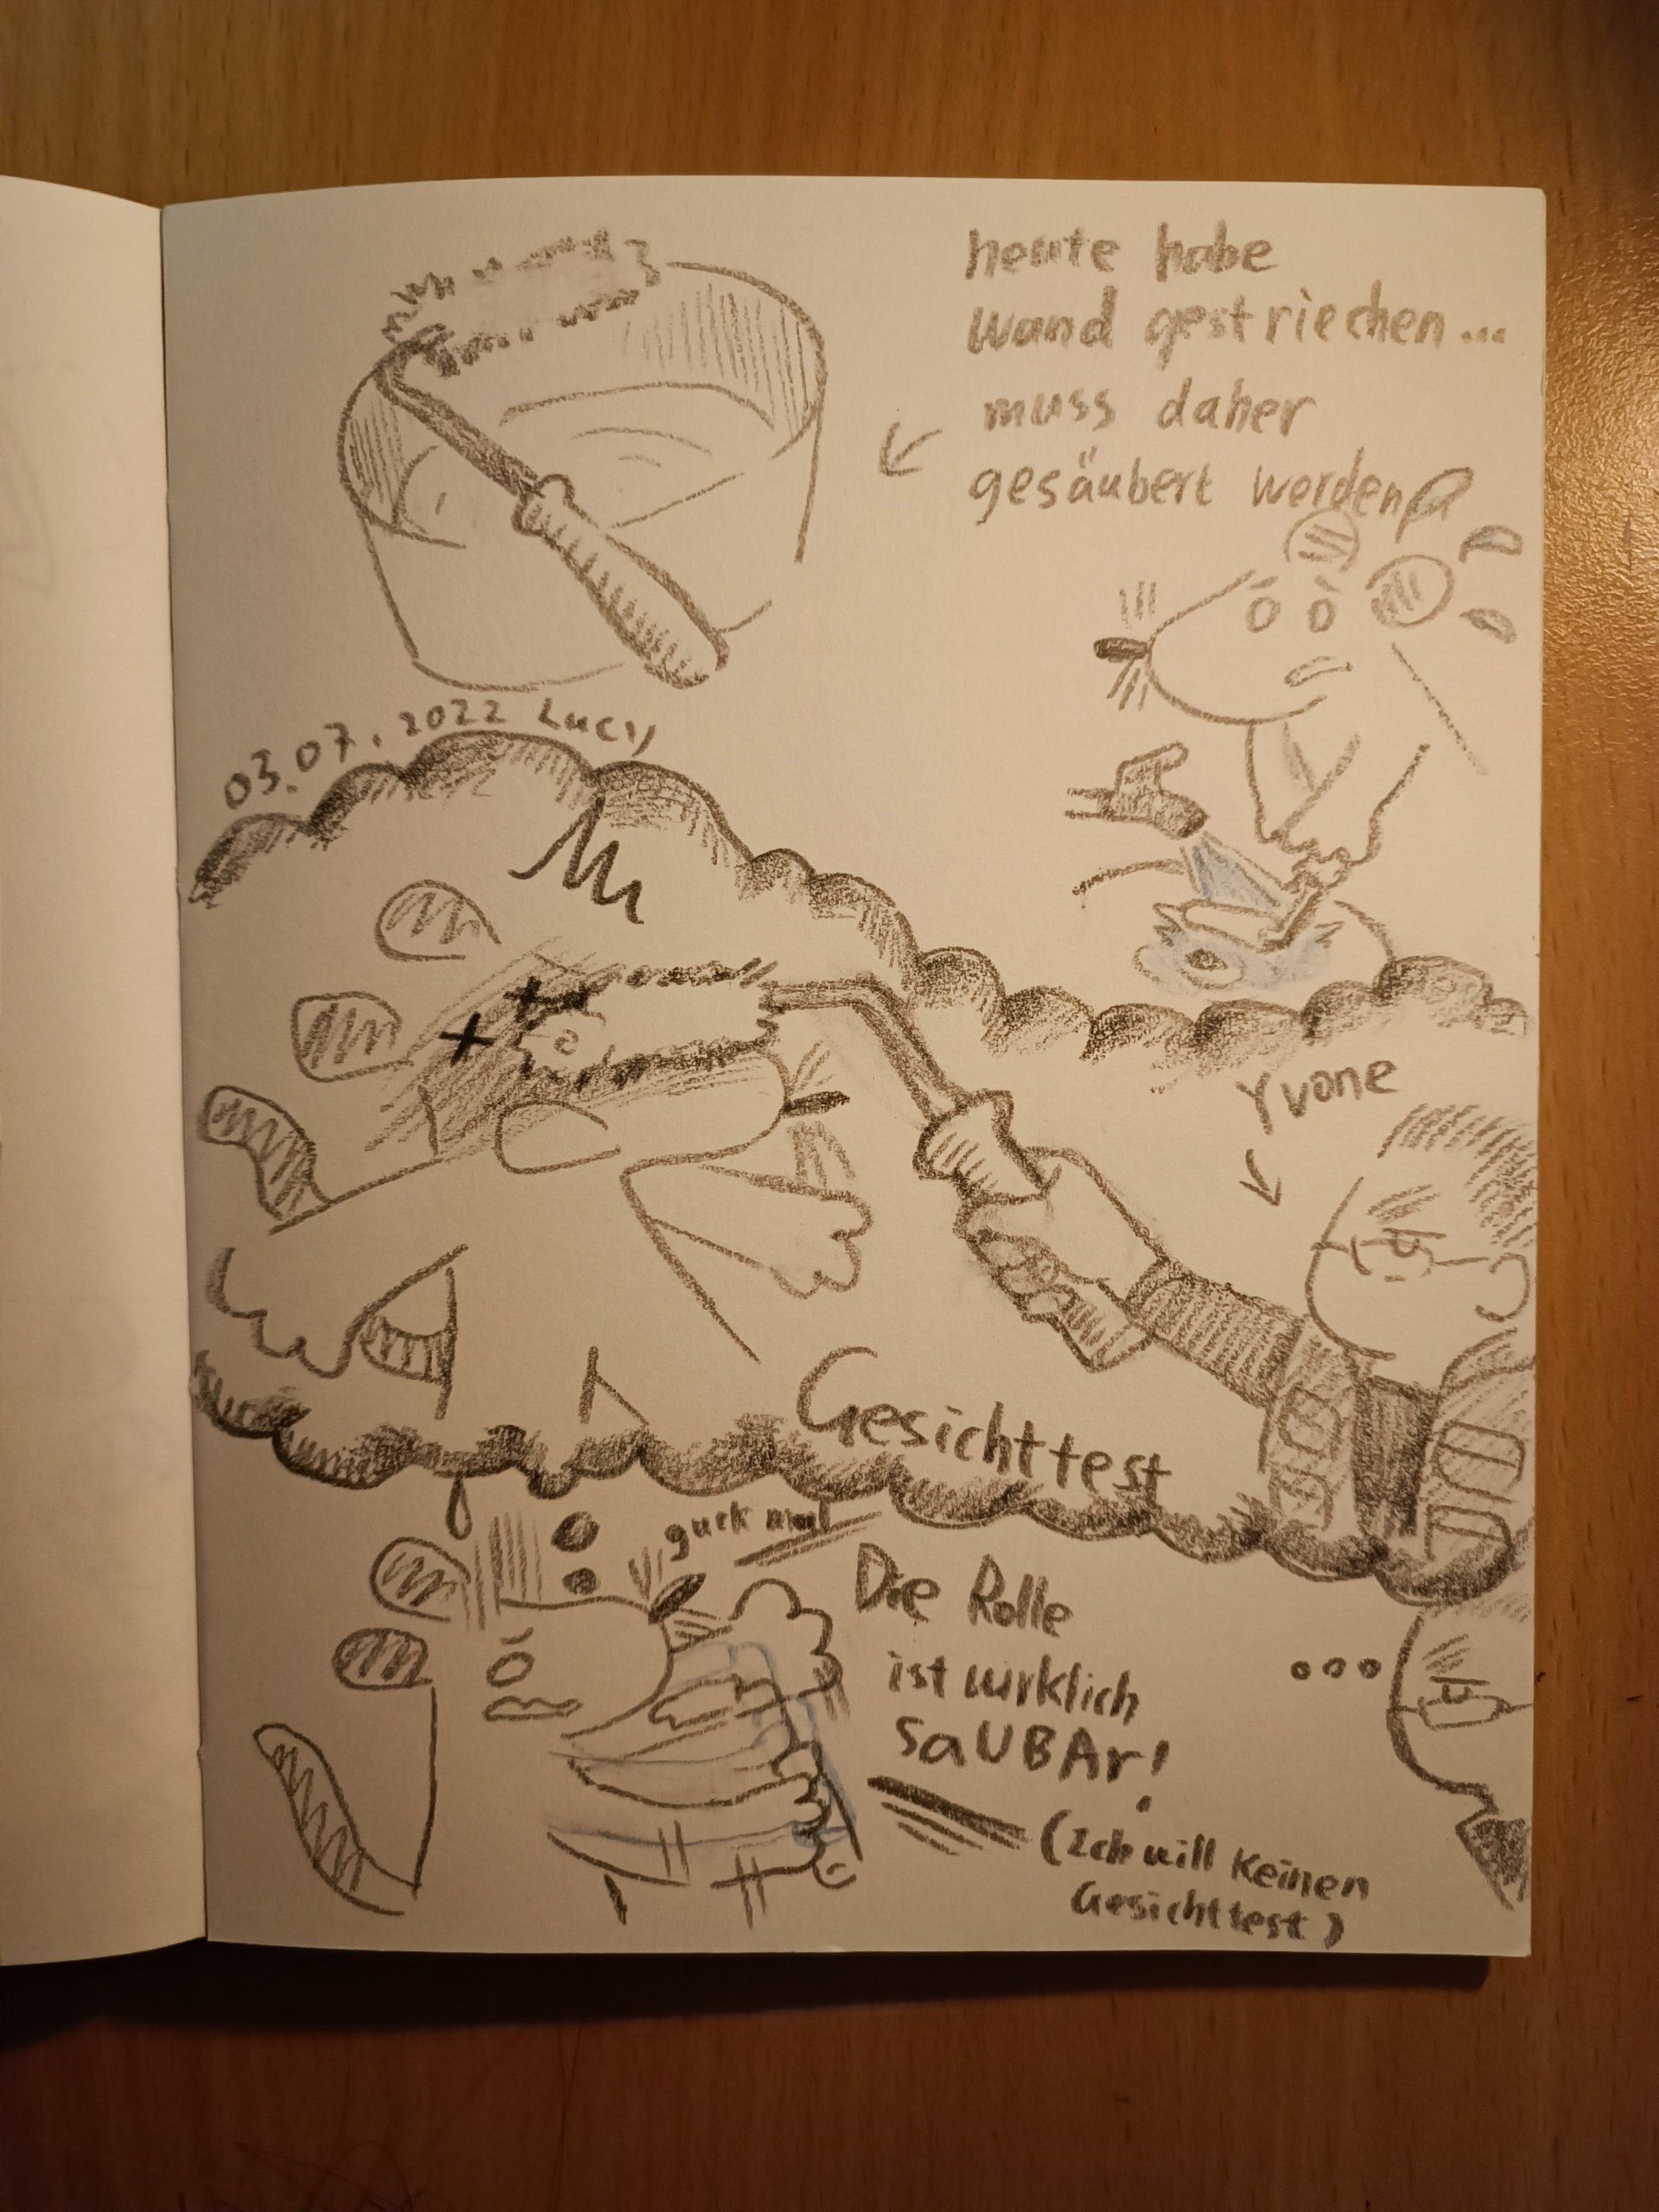 heute habe
wand gestriechen...
muss daher
gesäubert werden
03.07.2022 Lucy
Yvone
Gesichttest
guck mal
Die Rolle
ist wirklich
SaUBAr!
(Ich will keinen
Gesichttest)